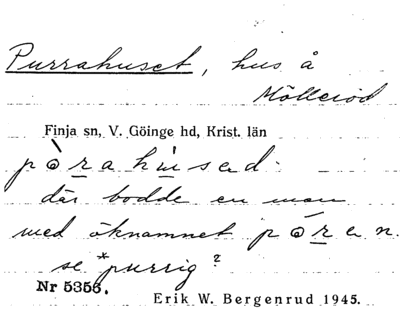 Purrahuset, hus å
Mölleröd
Finja sn, V. Göinge hd, Krist. län
pòrahu̇sed.
där bodde en man
med öknamnet póren.
se *purrig?
Nr 5356.
Erik W. Bergenrud 1945.